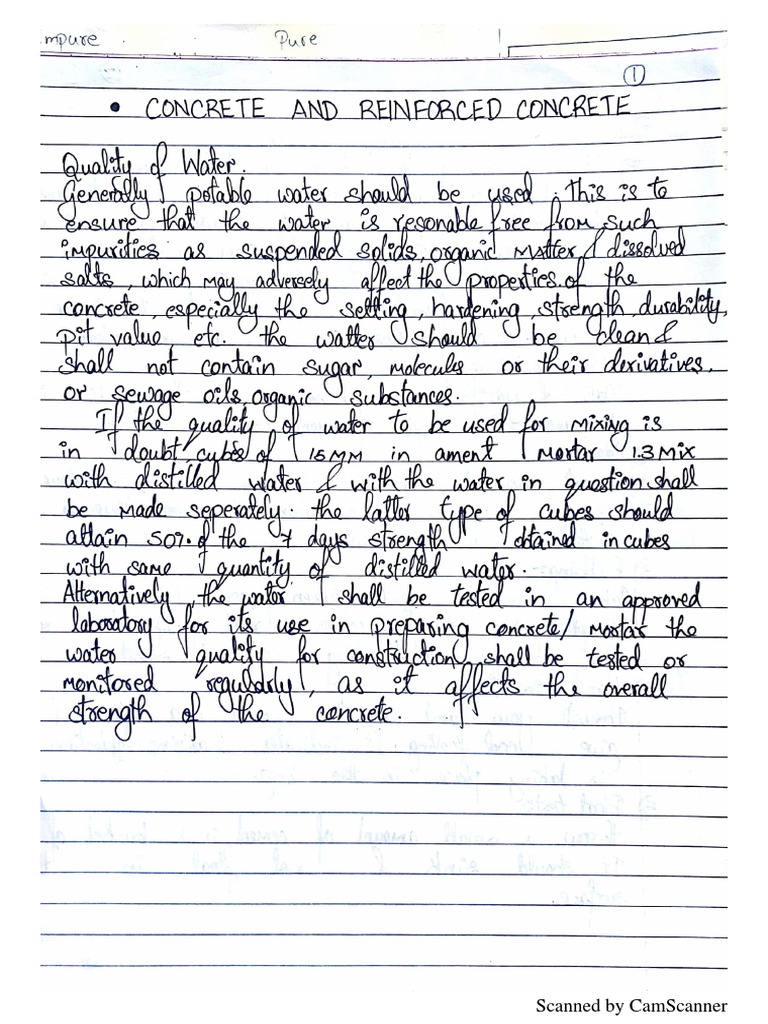 mpure Pure
1
• CONCRETE AND REINFORCED CONCRETE
Quality of Water.
Generally potable water should be used. This is to
ensure that the water is resonable free from such
impurities as suspended solids, organic matter / dissolved
salts, which may adversely affect the properties of the
concrete, especially the setting, hardening, strength, durability,
pit value, etc. the watter should be clean &
shall not contain sugar, molecules or their derivatives,
or sewage oils, organic substances.
If the quality of water to be used for mixing is
in doubt, cubes of 15 MM in ament mortar 1.3 Mix
with distilled water & with the water in question shall
be made seperately. the latter type of cubes should
attain 50%. of the 7 days strength obtained in cubes
with same quantity of distilled water.
Alternatively, the water shall be tested in an approved
laboratory for its use in preparing concrete/ Mortar the
water quality for construction shall be tested or
monitored regularly, as it affects the overall
strength of the concrete.
Scanned by CamScanner